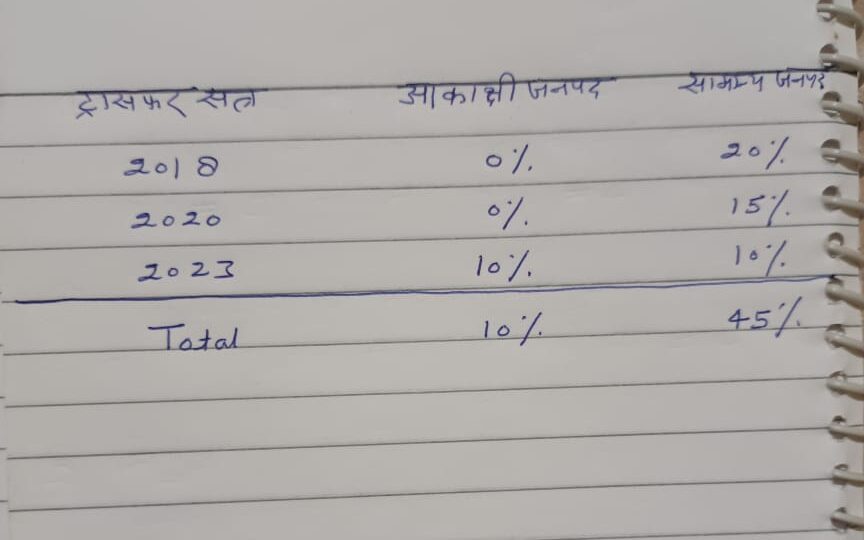 ट्रासफर सत्र आकाक्षी जनपद सामान्य जनपद
2018 0% 20%
2020 0% 15%
2023 10% 10%
Total 10% 45%